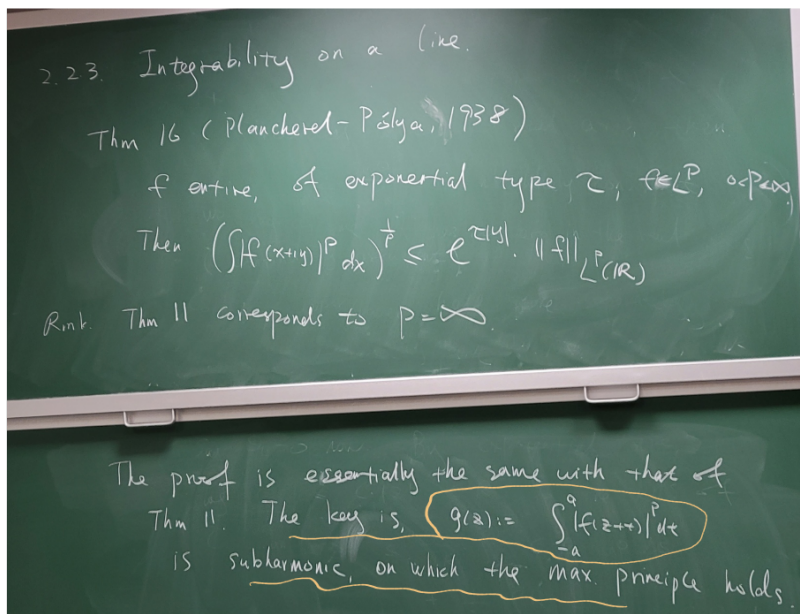 2.2.3. Integrability on a line.
Thm 16 (Plancherel-Pólya, 1938)
f entire, of exponential type τ, f∈L^p, 0<p<∞,
Then (∫|f(x+iy)|^p dx)^{1/p} ≤ e^{τ|y|}. ||f||_{L^p(ℝ)}
Rmk. Thm 11 corresponds to p=∞
The proof is essentially the same with that of
Thm 11. The key is, g(z):= ∫_{-a}^{a} |f(z+t)|^p dt
is subharmonic, on which the max. principle holds.